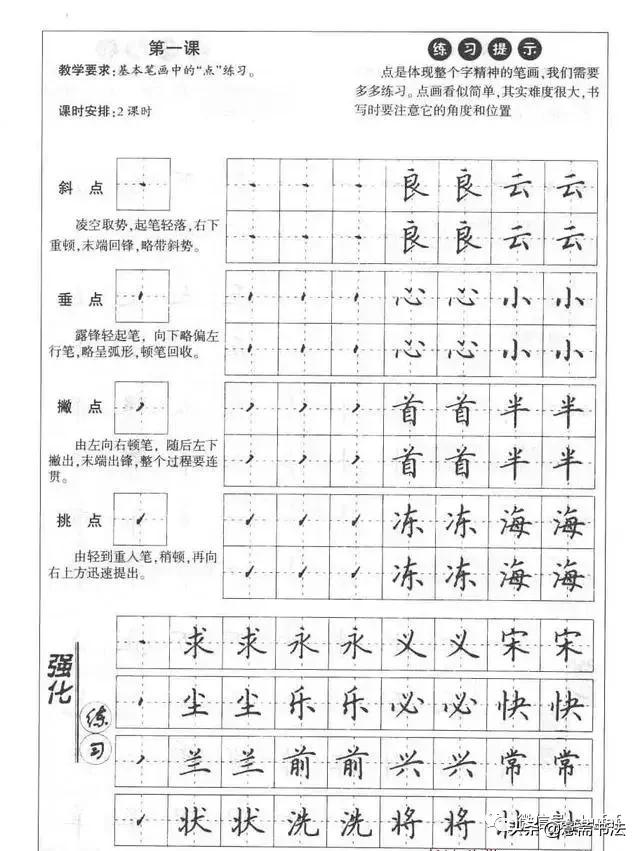 第一课
教学要求:基本笔画中的“点”练习。
课时安排:2课时
练习提示
点是体现整个字精神的笔画,我们需要
多多练习。点画看似简单,其实难度很大,书
写时要注意它的角度和位置
斜 点
良 良 云 云
凌空取势,起笔轻落,右下
重顿,末端回锋,略带斜势。
良 良 云 云
垂 点
心 心 小 小
露锋轻起笔,向下略偏左
行笔,略呈弧形,顿笔回收。
心 心 小 小
撇 点
首 首 半 半
由左向右顿笔,随后左下
撇出,末端出锋,整个过程要连
贯。
首 首 半 半
挑 点
冻 冻 海 海
由轻到重入笔,稍顿,再向
右上方迅速提出。
冻 冻 海 海
强化
练习
求 求 永 永 义 义 宋 宋
尘 尘 乐 乐 必 必 快 快
兰 兰 前 前 兴 兴 常 常
状 状 洗 洗 将 将